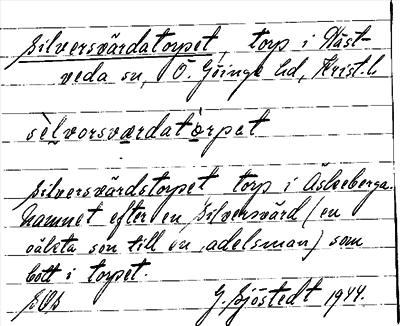 Silversvärdatorpet, torp i Häst-
veda sn, Ö. Göinge hd, Krist. l.
sèlvorsvœrdatòrpet
Silversvärdstorpet torp i Äskeberga.
Namnet efter en Silversvärd (en
oäkta son till en adelsman) som
bott i torpet.
G. Sjöstedt 1944.